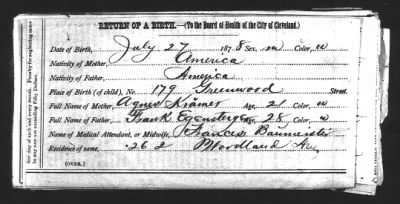 RETURN OF A BIRTH.—(To the Board of Health of the City of Cleveland.)
Date of Birth, July 27 1878 Sex, m Color, w
Nativity of Mother, America
Nativity of Father, America
Place of Birth (of child), No. 179 Greenwood Street.
Full Name of Mother, Agnes Kramer Age, 21 Color, w
Full Name of Father, Frank Age, 28 Color, w
Name of Medical Attendant, or Midwife, Frances Baumeister
Residence of same, 262 Woodland Ave
(OVER.)